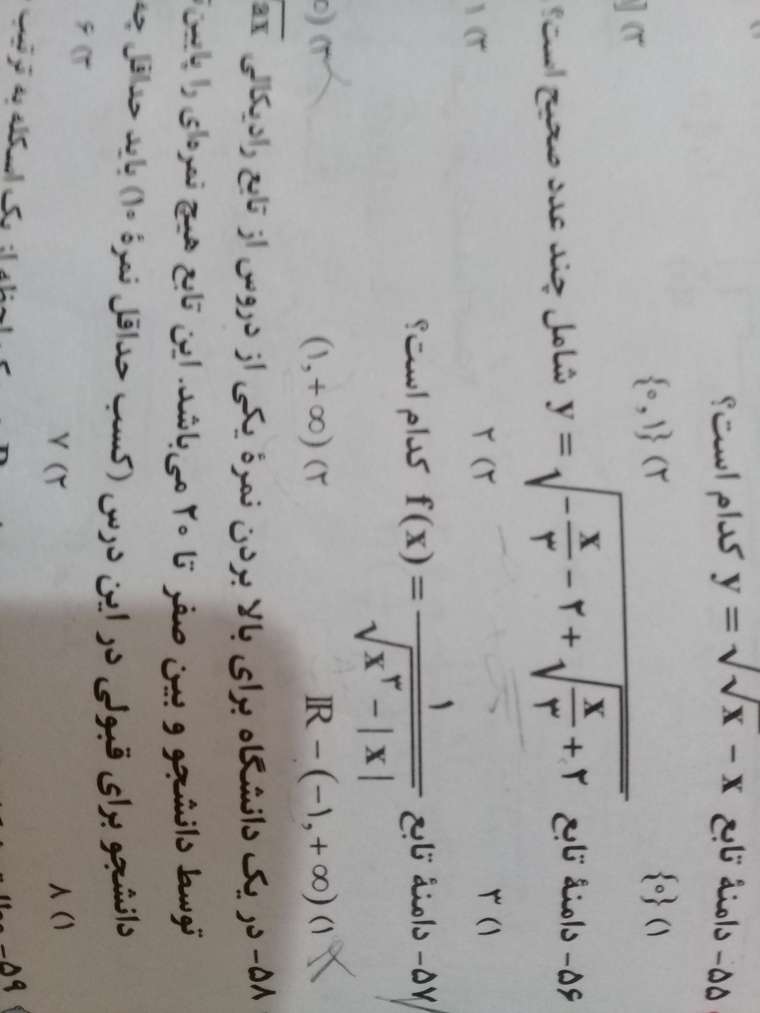 ۵۵- دامنهٔ تابع y = √(√x - x) کدام است؟
۱) {۰} ۲) {۰,۱} ۳)
۵۶- دامنهٔ تابع y = √(-x/۳ - ۲ + √(x/۳ + ۲)) شامل چند عدد صحیح است؟
۱) ۳ ۲) ۲ ۳) ۱
۵۷- دامنهٔ تابع f(x) = ۱/√(x³ - |x|) کدام است؟
۱) ℝ - (-۱, +∞) ۲) (۱, +∞) ۳)
۵۸- در یک دانشگاه برای بالا بردن نمرهٔ یکی از دروس از تابع رادیکالی √ax
توسط دانشجو و بین صفر تا ۲۰ می‌باشد. این تابع هیچ نمره‌ای را پایین
دانشجو برای قبولی در این درس (کسب حداقل نمرهٔ ۱۰) باید حداقل
۱) ۸ ۲) ۷ ۳) ۶
۵۹- از یک اسکله به ترتیب